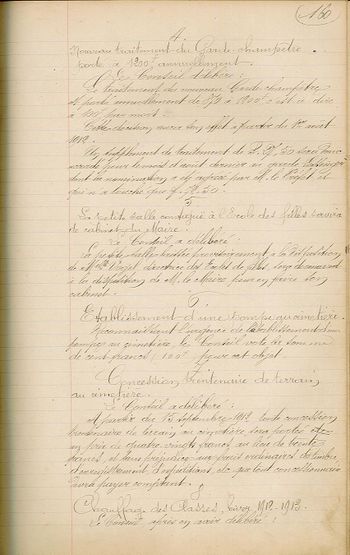 160
4
Nouveau traitement du Garde-champêtre
porté à 1200f annuellement.
Le Conseil délibère :
Le traitement du nouveau Garde champêtre
est porté annuellement de à 1200f c'est à dire
à 100f par mois.
Cette décision aura son effet à partir du 1er août
1912.
Un supplément de traitement de sera
pour le mois d'août dernier au garde
dont la nomination a été par M. le Préfet et
qui n'a touché que
5
La petite salle contiguë à l'Ecole des filles servira
de cabinet du Maire.
Le Conseil a délibéré
La petite salle provisoirement à la disposition
de Melle directrice de l'Ecole de filles, sera
à la disposition de M. le Maire pour en faire son
cabinet.
6
Etablissement d'une pompe au cimetière.
Reconnaissant l'urgence de l'établissement d'une
pompe au cimetière, le Conseil vote la somme
de cent francs (100f) pour cet objet.
7
Concession trentenaire de terrain,
au cimetière.
Le Conseil a délibéré :
A partir du 15 septembre 1912 toute concession
trentenaire de terrain au cimetière sera portée
au prix de quatre vingts francs au lieu de trente
francs et sans préjudice aux frais ordinaires de timbre,
d'enregistrement, d'expédition, etc que tout concessionnaire
aura à payer comptant.
8
Chauffage des Classes, hiver 1912-1913.
Le Conseil après en avoir délibéré :